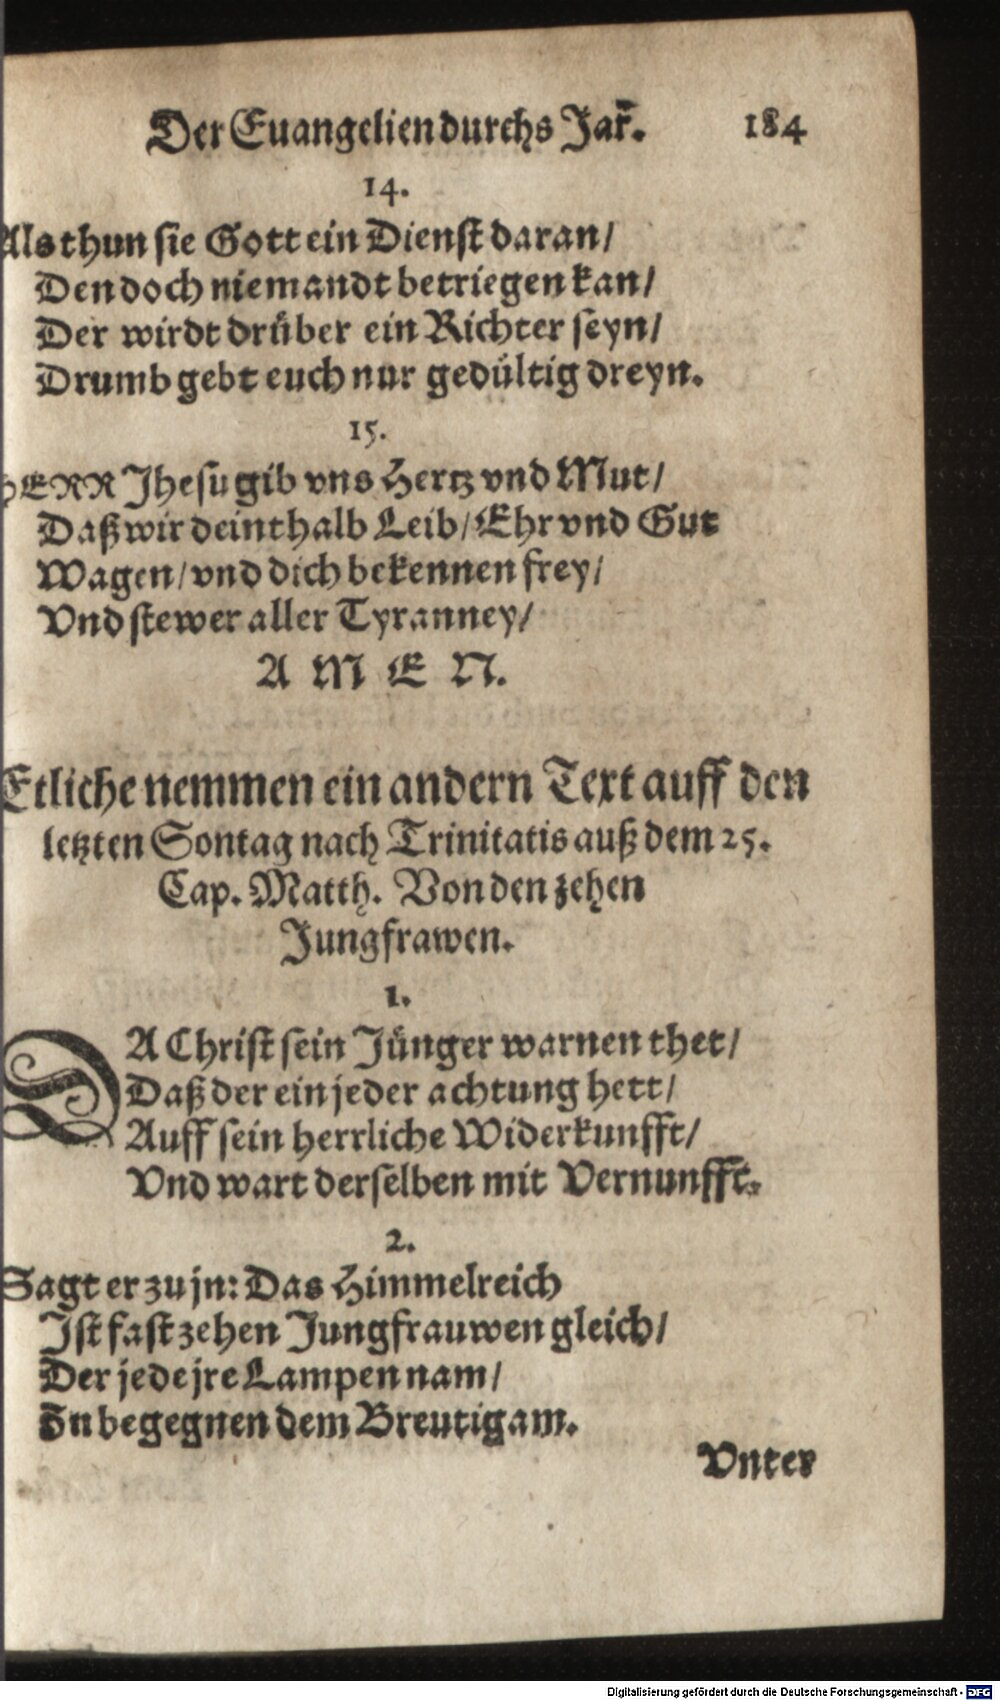 Der Euangelien durchs Jar̃. 184
14.
Als thun sie Gott ein Dienst daran/
Den doch niemandt betriegen kan/
Der wirdt drüber ein Richter seyn/
Drumb gebt euch nur gedültig dreyn.
15.
HERR Jhesu gib vns Hertz vnd Mut/
Daß wir deinthalb Leib/ Ehr vnd Gut
Wagen/ vnd dich bekennen frey/
Vnd stewer aller Tyranney/
A M E N.
Etliche nemmen ein andern Text auff den
letzten Sontag nach Trinitatis auß dem 25.
Cap. Matth. Von den zehen
Jungfrawen.
1.
DA Christ sein Jünger warnen thet/
Daß der ein jeder achtung hett/
Auff sein herrliche Widerkunfft/
Vnd wart derselben mit Vernunfft.
2.
Sagt er zu jn: Das Himmelreich
Jst fast zehen Jungfrauwen gleich/
Der jede jre Lampen nam/
Zu begegnen dem Breutigam.
Vnter
Digitalisierung gefördert durch die Deutsche Forschungsgemeinschaft - DFG